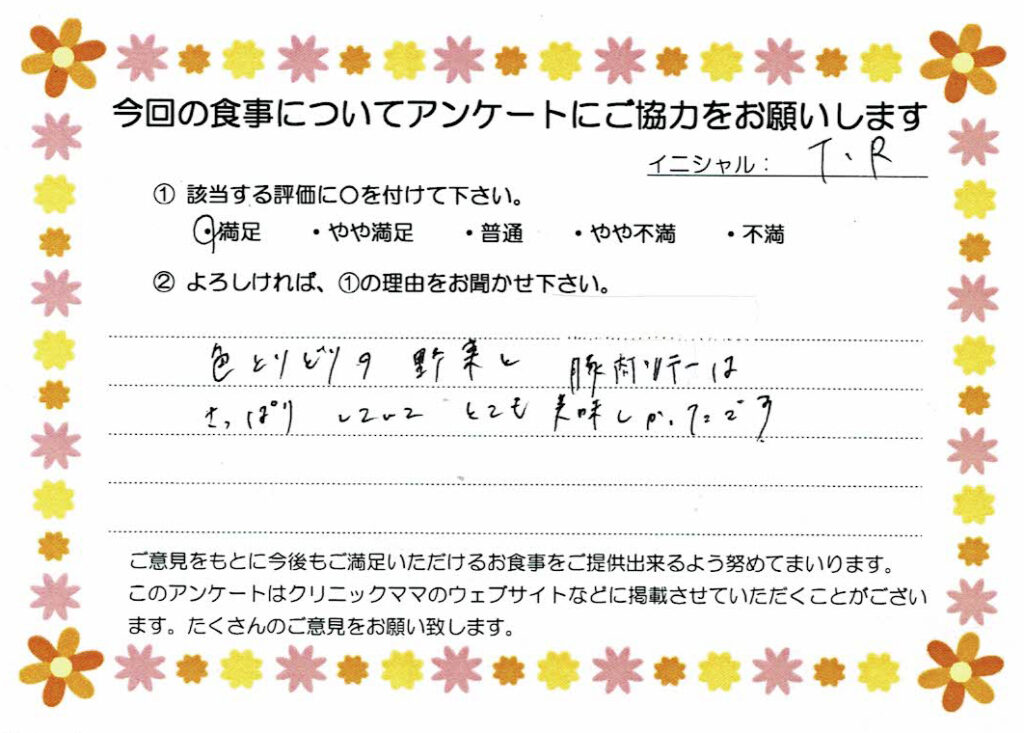 今回の食事についてアンケートにご協力をお願いします
イニシャル： T、R
① 該当する評価に〇を付けて下さい。
・満足 ・やや満足 ・普通 ・やや不満 ・不満
② よろしければ、①の理由をお聞かせ下さい。
色とりどりの野菜と 豚肉ソテーは
さっぱり していて とても 美味しかったです
ご意見をもとに今後もご満足いただけるお食事をご提供出来るよう努めてまいります。
このアンケートはクリニックママのウェブサイトなどに掲載させていただくことがござい
ます。たくさんのご意見をお願い致します。